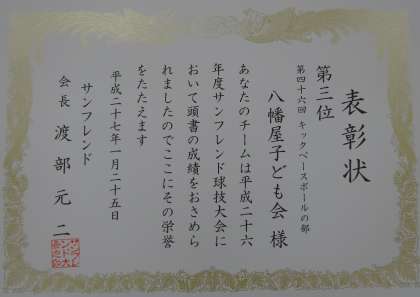 表彰状
第三位
第四十六回 キックベースボールの部
八幡屋子ども会 様
あなたのチームは平成二十六
年度サンフレンド球技大会に
おいて頭書の成績をおさめら
れましたのでここにその栄誉
をたたえます
平成二十七年一月二十五日
サンフレンド
会長 渡部元二